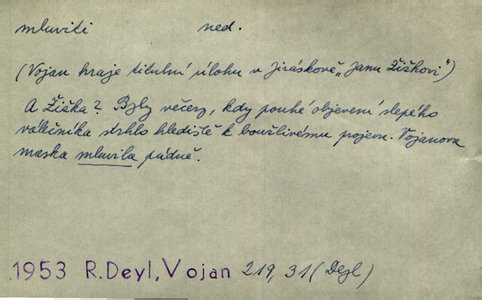 mluviti ned.
(Vojan hraje titulní úlohu v Jiráskově „Janu Žižkovi")
A Žižka? Byly večery, kdy pouhé objevení slepého
válečníka strhlo hlediště k bouřlivému projevu. Vojanova
maska mluvila pádně.
1953 R. Deyl, Vojan 219, 31 (Deyl)